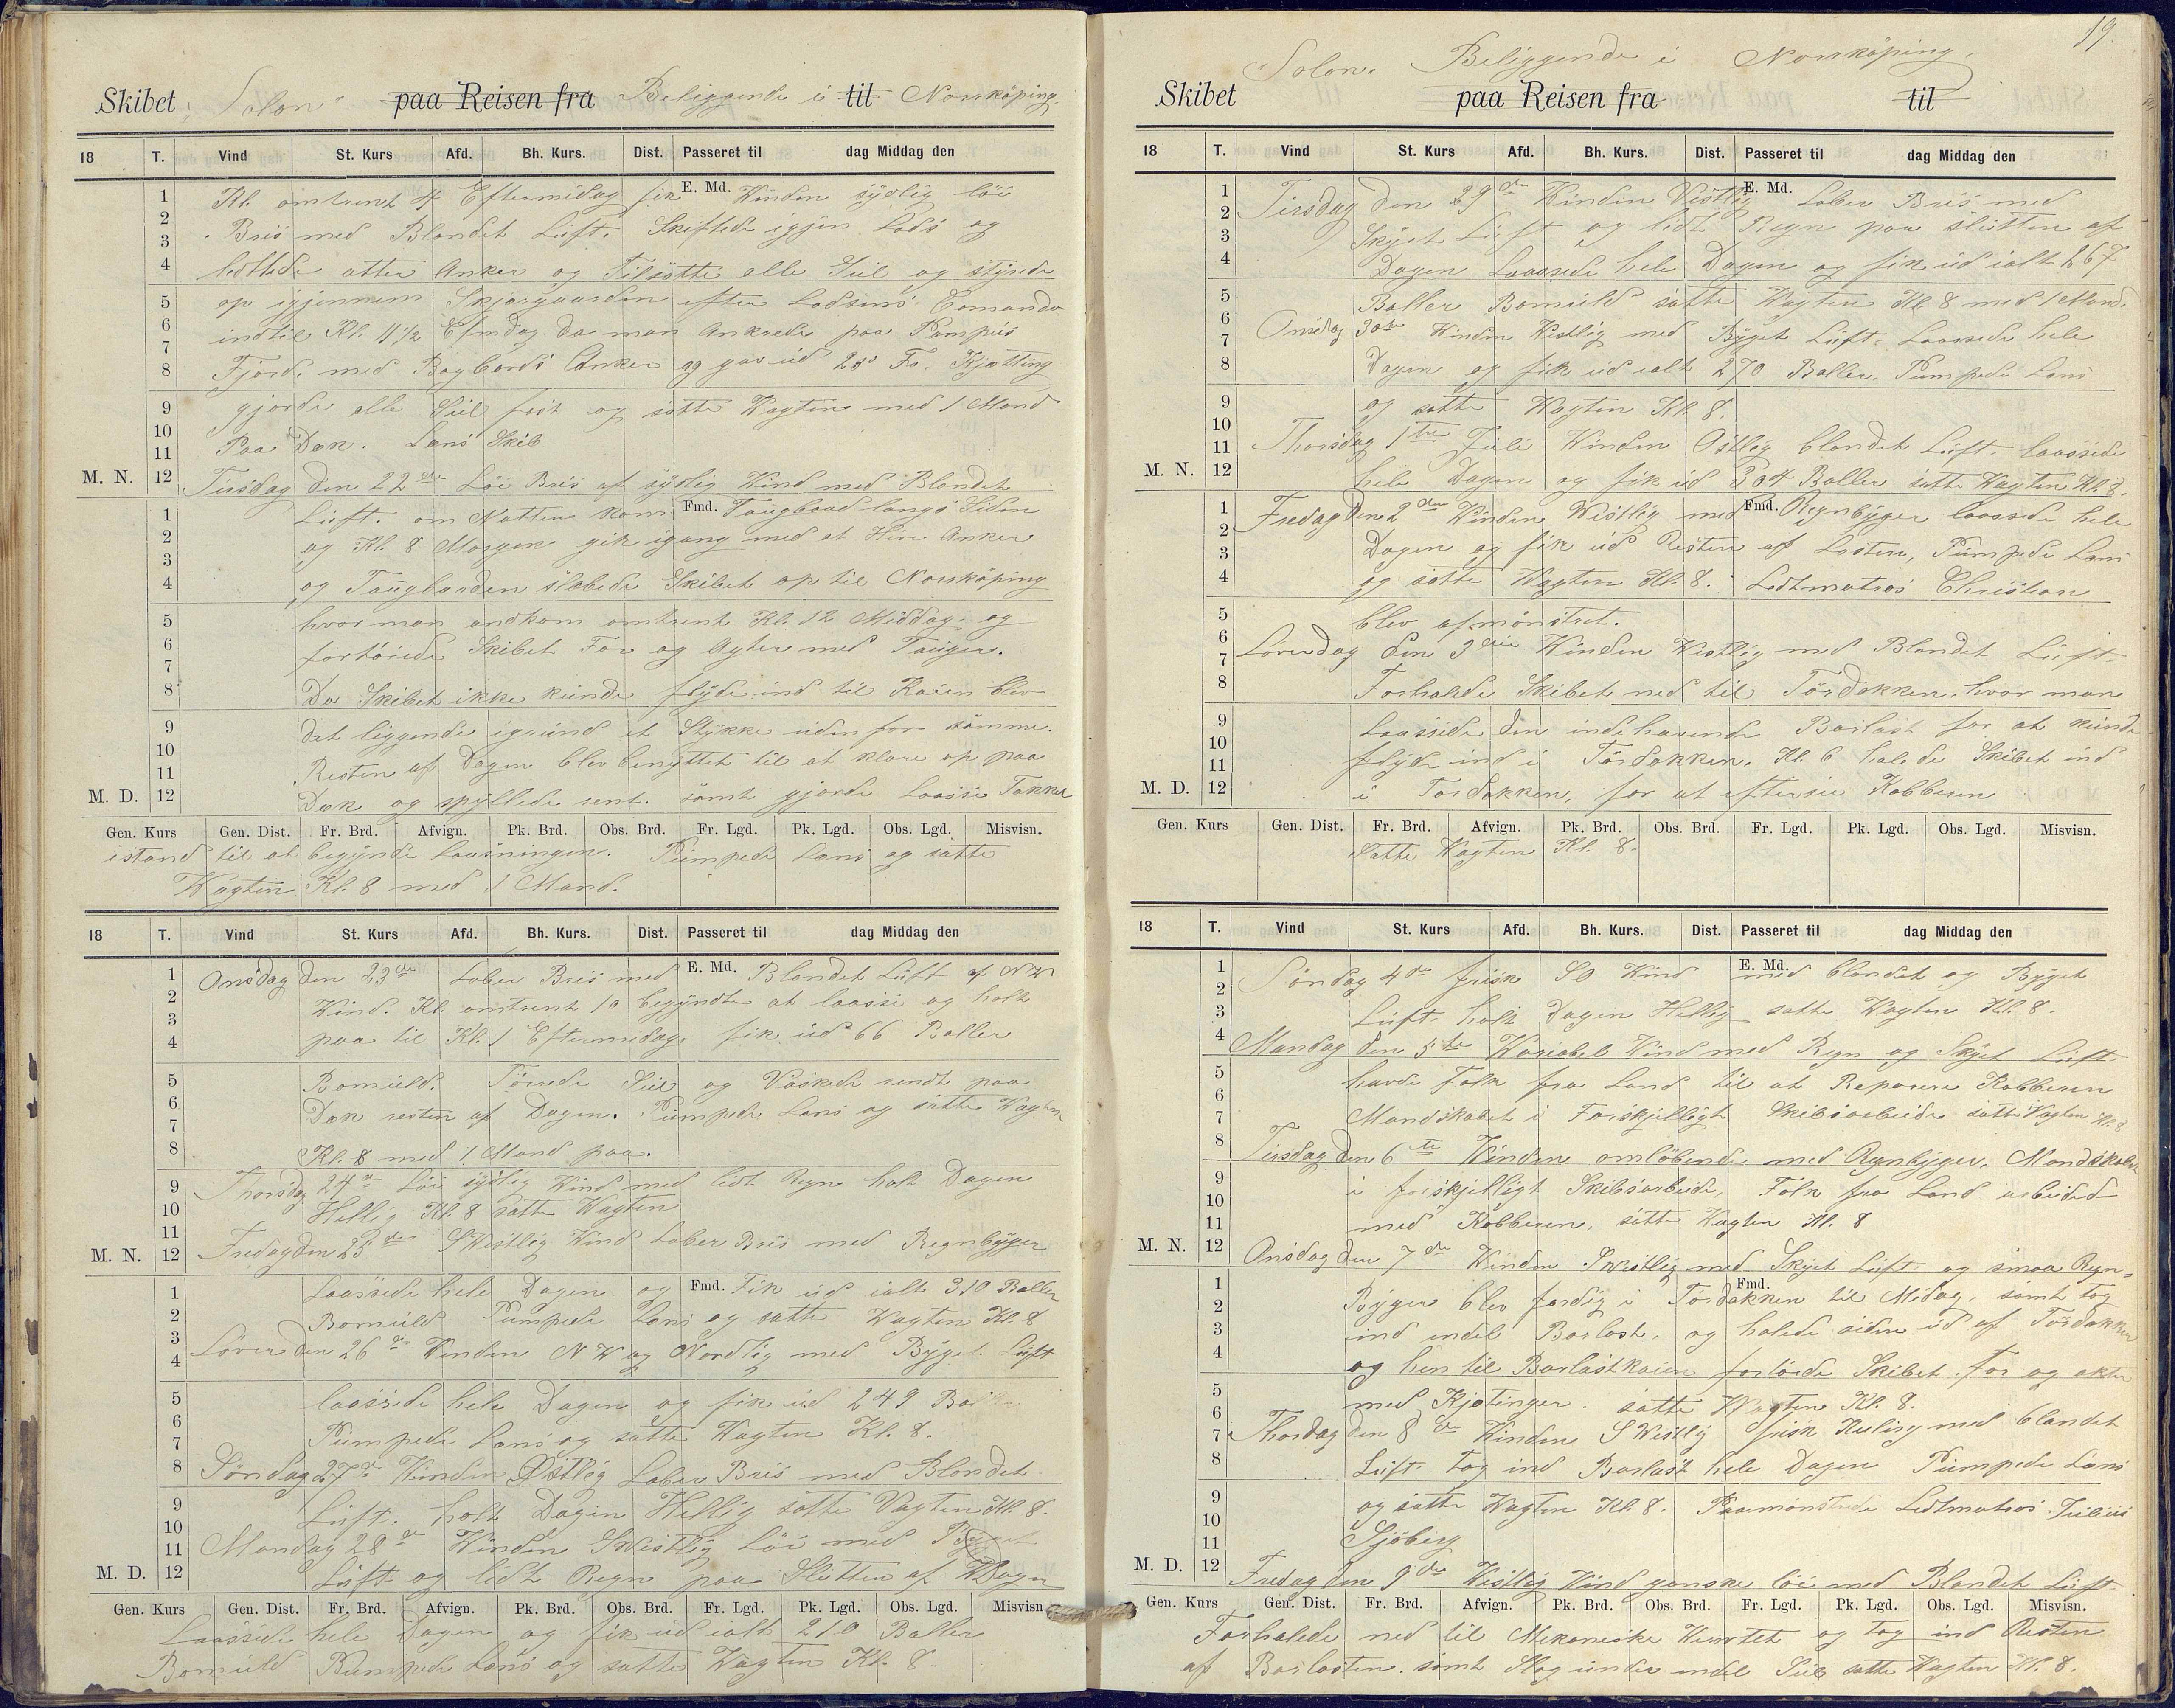 Skibet "Solon" paa Reisen fra Beliggende i til Norrköping.
18 T. Vind St. Kurs Afd. Bh. Kurs. Dist. Passeret til dag Middag den
E. Md.
1 Kl. omtrent 4 Eftermidag fik Vinden sydlig löi
2 Bris med Blandet Luft. Skiftede igjen Lods og
3
4 lettede atter Anker og Tilsatte alle Seil og styrede
5 op igjennem Skjærgaarden efter Lodsens Comando
6 indtil Kl. 11 1/2 Efmdag da man Ankrede paa Pampus
7
8 Fjord. med Bagbords Anker og gav ud 20 Fv. Kjætting
9 gjorde alle Seil fast og satte Vagten med 1 Mand
10
11 Paa Dæk. Læns Skib
M. N. 12 Tirsdag den 22de Löi Bris af sydlig Vind med Blandet
Fmd.
1 Luft. om Natten kom Taugbaad langs Siden
2 og Kl. 8 Morgen gik igang med at Hive Anker
3
4 og Taugbaaden slæbede Skibet op til Norrköping
5 hvor man andkom omtrent Kl. 12 Middag og
6 fortöiede Skibet For og Agter med Tauger.
7
8 Da Skibet ikke kunde flyde ind til Kaien blev
9 det liggende igrund et Stykke uden for samme.
10 Resten af Dagen blev benyttet til at klare op paa
11
M. D. 12 Dæk og spyllede rent. samt gjorde Laasse Takkel
Gen. Kurs Gen. Dist. Fr. Brd. Afvign. Pk. Brd. Obs. Brd. Fr. Lgd. Pk. Lgd. Obs. Lgd. Misvisn.
istand til at begynde Laasningen. Pumpede Læns og satte
Vagten Kl. 8 med 1 Mand.
18 T. Vind St. Kurs Afd. Bh. Kurs. Dist. Passeret til dag Middag den
E. Md.
1 Onsdag den 23de Laber Bris med Blandet Luft af NW
2 Vind. Kl. omtrent 10 begyndte at laasse og holt
3
4 paa til Kl. 1 Eftermidag fik ud 66 Baller
5 Bomuld. Törrede Seil og Vaskede rendt paa
6 Dæk resten af Dagen. Pumpede Læns og satte Vagten
7
8 Kl. 8 med 1 Mand paa.
9 Thorsdag 24de Löi sydlig Vind med lidt Regn holt Dagen
10 Hellig Kl. 8 satte Vagten
11
M. N. 12 Fredag den 25de SWestlig Vind Laber Bris med Regnbyger
Fmd.
1 Laassede hele Dagen og Fik ud ialt 310 Baller
2 Bomuld Pumpede Læns og satte Vagten Kl. 8
3 Lörer den 26de Vinden NW og Nordlig med Byget Luft
4
5 laassede hele Dagen og fik ud 249
6 Pumpede Læns og satte Vagten Kl. 8.
7
8 Söndag 27de Vinden Östlig Laber Bris med Blandet
9 Luft. holt Dagen Hellig satte Vagten Kl. 8.
10
11 Mandag 28de Vinden SWestlig Löi med Byget
M. D. 12 Luft og lidt Regn paa Slutten af Dagen
Gen. Kurs Gen. Dist. Fr. Brd. Afvign. Pk. Brd. Obs. Brd. Fr. Lgd. Pk. Lgd. Obs. Lgd. Misvisn.
Laassede hele Dagen og fik ud ialt 210 Baller
Bomuld Pumpede Læns og satte Vagten Kl. 8.
19.
Solon. Beliggende i Norrköping.
Skibet paa Reisen fra til
18 T. Vind St. Kurs Afd. Bh. Kurs. Dist. Passeret til dag Middag den
E. Md.
1 Tirsdag den 29de Vinden Vestlig Laber Bris med
2
3 Skyet Luft og lidt Regn paa slutten af
4 Dagen Laassede hele Dagen og fik ud ialt 267
5 Baller Bomuld satte Vagten Kl. 8 med 1 Mand.
6 Onsdag 30te Vinden Vestlig med Byget Luft. Laassede hele
7
8 Dagen og fik ud ialt 270 Baller. Pumpede Læns
9 og satte Vagten Kl. 8.
10
11 Thorsdag 1ste Juli Vinden Östlig blandet Luft. Laassede
M. N. 12 hele Dagen og fik ud 204 Baller satte Vagten Kl. 8.
Fmd.
1 Fredag Den 2den Vinden Westlig med Regnbyger laassede hele
2
3 Dagen og fik ud Resten af Lasten, Pumpede Læns
4 og satte Vagten Kl. 8. Letmatros Christian
5 blev afmönstret.
6
7 Löverdag den 3die Vinden Westlig med Blandet Luft.
8 Forhalede Skibet ned til Tördokken. hvor man
9 Laassede den indehavende Barlast for at kunde
10
11 flyde ind i Tördokken. Kl. 6 halede Skibet ind
M. D. 12 i Tördokken, for at eftersee Kobberen
Gen. Kurs Gen. Dist. Fr. Brd. Afvign. Pk. Brd. Obs. Brd. Fr. Lgd. Pk. Lgd. Obs. Lgd. Misvisn.
Satte Vagten Kl. 8.
18 T. Vind St. Kurs Afd. Bh. Kurs. Dist. Passeret til dag Middag den
E. Md.
1 Söndag 4de frisk SO Vind med blandet og Byget
2
3 Luft. holt Dagen Hellig satte Vagten Kl. 8.
4 Mandag den 5te Variabel Vind med Regn og Skyet Luft
5 havde Folk fra Land til at Reparere Kobberen
6
7 Mandskabet i Forskjelligt Skibsarbeide satte Vagten Kl. 8
8 Tirsdag den 6te Vinden omlöbende med Regnbyger. Mandskabet
9 i forskjelligt Skibsarbeide, Folk fra Land arbeided
10
11 med Kobberen, satte Vagten Kl. 8
M. N. 12 Onsdag den 7de Vinden SWestlig med Skyet Luft og smaa Regn-
Fmd.
1 Byger blev færdig i Tördokken til Midag. samt tog
2
3 ind endel Barlast, og halede siden ud af Tördokken
4 og hen til Barlastkaien fortöiede Skibet. for og akter
5 med Kjetinger. satte Vagten Kl. 8.
6
7 Thorsdag den 8de Vinden SWestlig frisk Kuling med blandet
8 Luft. tog ind Barlast hele Dagen Pumpede Læns
9 og satte Vagten Kl. 8. Paamönstrede Letmatros Julius
10
11 Sjöberg
M. D. 12 Fredag den 9de Westlig Vind ganske löi med Blandet Luft.
Gen. Kurs Gen. Dist. Fr. Brd. Afvign. Pk. Brd. Obs. Brd. Fr. Lgd. Pk. Lgd. Obs. Lgd. Misvisn.
Forhalede ned til Mekaneske og tog ind Resten
af Barlasten. samt Slog under endel Seil satte Vagten Kl. 8.